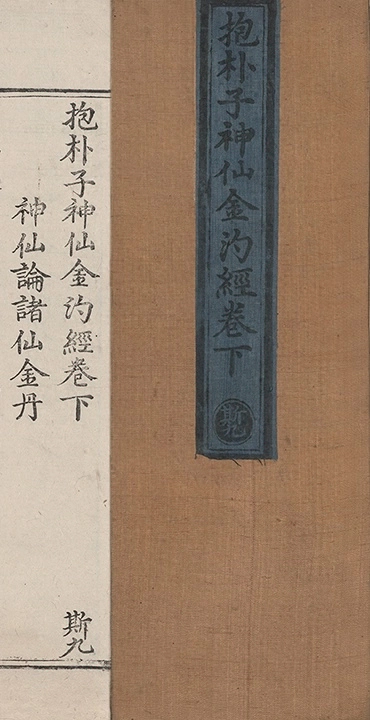 抱朴子神仙金汋經卷下
斯九
抱朴子神仙金汋經卷下
斯九
神仙論諸仙金丹